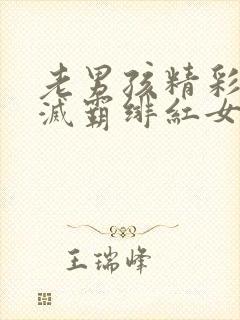 老男孩精彩
滅霸緋紅女
王瑞峰